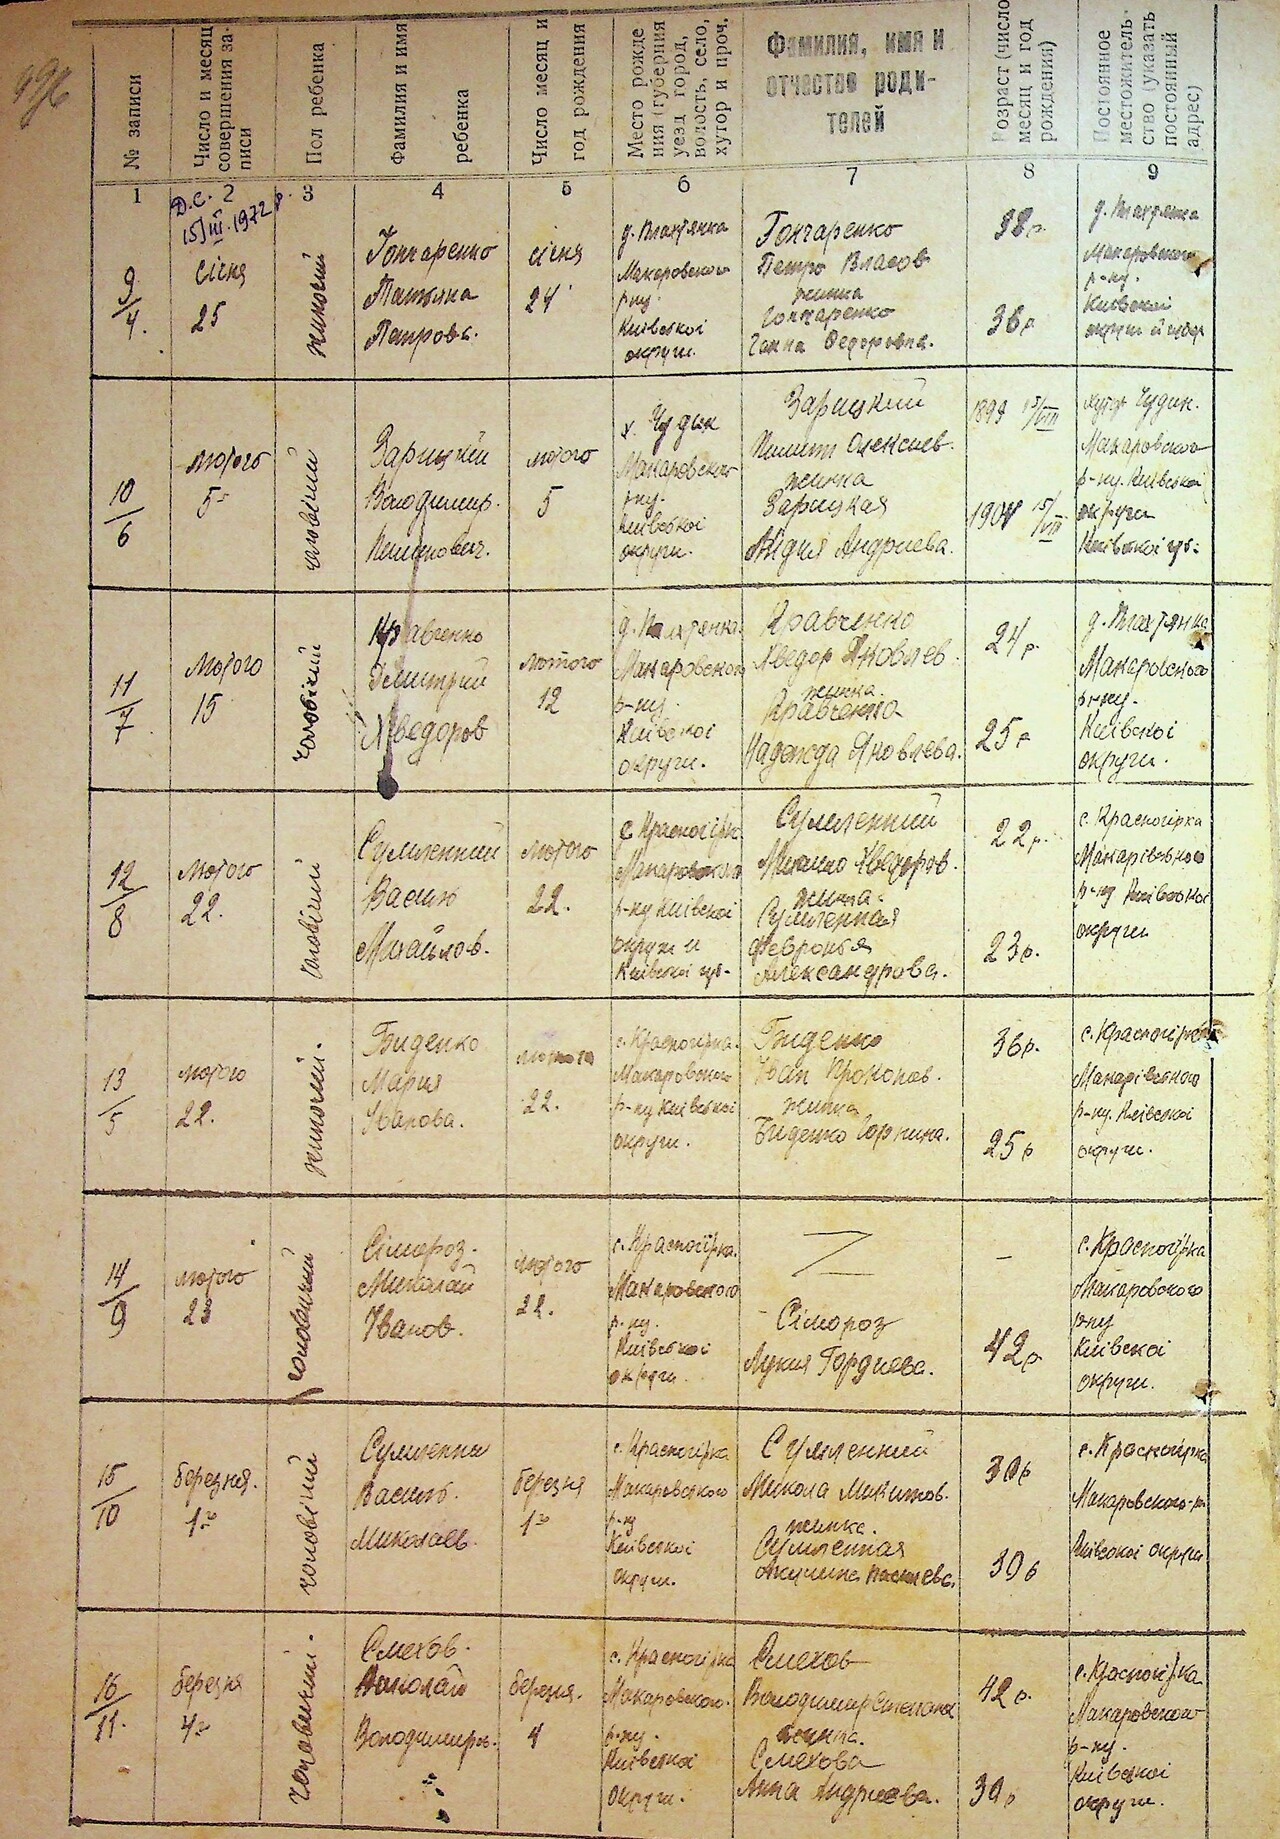 № записи
Число и месяц
совершения за-
писи
Пол ребенка
Фамилия и имя
ребенка
Число месяц и
год рождения
Место рожде
ния (губерния
уезд город,
волость, село,
хутор и проч.
Фамилия, имя и
отчество роди-
телей
Возраст (число
месяц и год
рождения)
Постоянное
местожитель-
ство (указать
постоянный
адрес)
1
2
3
4
5
6
7
8
9
Д.С.
15/III.1972 р.
9/4.
січня
25
жиночий
Гончаренко
Татьяна
Петрова.
січня
24
Макаровского
р-ну.
Київської
округи.
Гончаренко
Петро Власов
жинка
Гончаренко
Ганна Федоровна.
38 р.
36 р.
Макаровского
р-ну.
Київської
10/6
лютого
5
чловічий
Зарицкий
Володимир.
лютого
5
х. Чудин
Макаровского
р-ну.
Київської
округи.
Зарицкий
Олексиев.
жинка
Зарицкая
Лидия Андриева.
1899 15/VIII
15/VII
хутор Чудин.
Макаровского
р-ну. Київської
округи
11/7
лютого
15
чоловічий
Кравченко
Дмитрий
Хведоров
лютого
12
Макаровского
р-ну.
Київської
округи.
Кравченко
Хведор Яковлев.
жинка.
Кравченко
Надежда Яковлева.
24 р.
25 р.
Макаровського
р-ну.
Київської
округи.
12/8
лютого
22.
чоловічий
Сумленний
Василь
Михайлов.
лютого
22.
с. Красногірка
Макаровского
р-ну Київської
округи
Сумленний
Михайло Хведоров.
жинка.
Сумленная
Февронья
Александрова.
22 р.
23 р.
с. Красногірка
Макарівського
р-ну Київської
округи
13/5
лютого
22.
жиночий.
Биденко
Мария
Иванова.
лютого
22.
с. Красногірка.
Макаровского
р-ну Київської
округи.
Биденко
Иван Прокопов.
жинка
Биденко
36 р.
25 р
с. Красногірка
Макарівського
р-ну. Київської
округи.
14/9
лютого
23
чоловичий
Сімороз.
Миколай
Иванов.
лютого
22.
с. Красногірка.
Макаровского
р-ну.
Київської
округи.
Сімороз
Лукия Гордиева.
–
42 р
с. Красногірка
Макаровского
р-ну
Київської
округи.
15/10
березня.
1го
чоловічий
Василь.
Миколаев.
березня
1го
с. Красногірка
Макаровського
р-ну
Київської
округи.
Сумленний
Микола Микитов.
жинка.
Сумленная
30 р
30 р
с. Красногірка
Макаровского р-н
Київської округи
16/11.
березня
4го
чоловичий.
Смехов.
Миколай
Володимиров.
березня.
4
с. Красногірка
Макаровского.
р-ну.
Київської
округи.
Смехов
Володимир Степанов
жинка.
Смехова
Анна Андреева.
42 р.
30 р
с. Красногірка
Макаровского
р-ну.
Київської
округи.